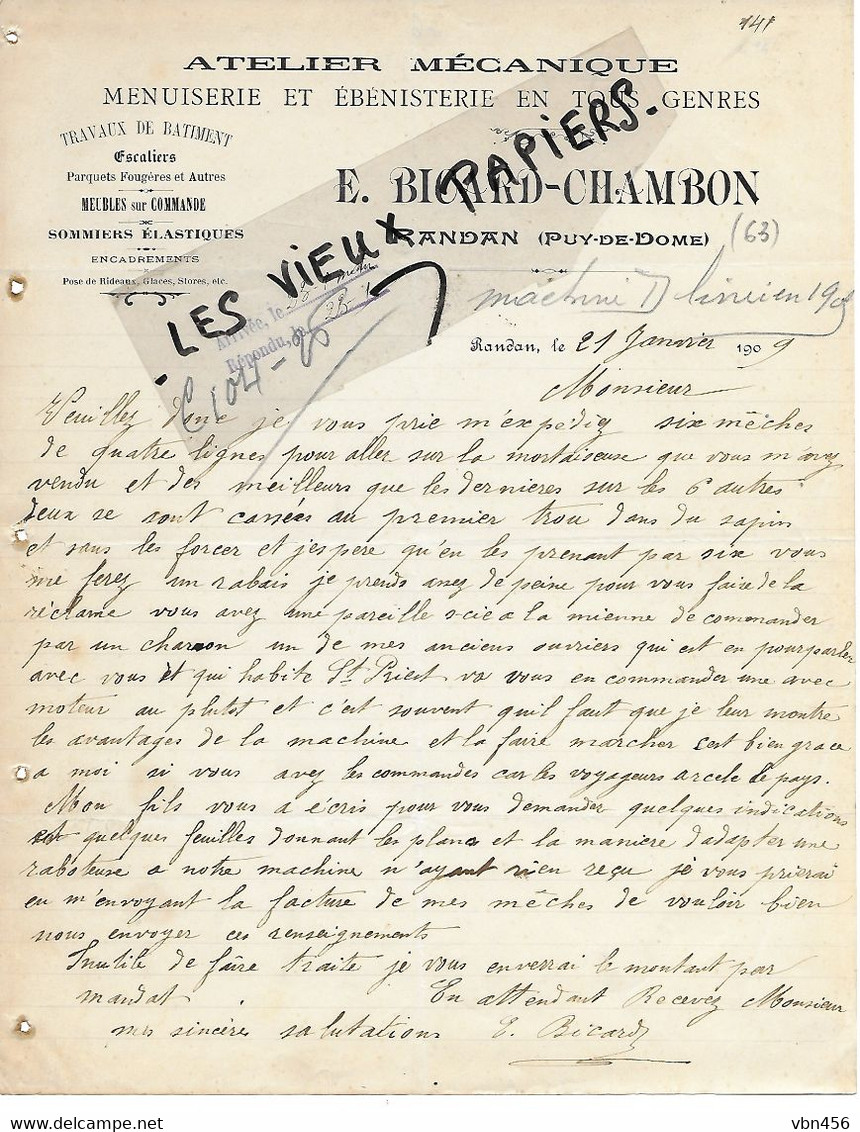 141
ATELIER MÉCANIQUE
MENUISERIE ET ÉBÉNISTERIE EN TOUS GENRES
TRAVAUX DE BATIMENT
Escaliers
Parquets Fougères et Autres
MEUBLES sur COMMANDE
SOMMIERS ÉLASTIQUES
ENCADREMENTS
Pose de Rideaux, Glaces, Stores, etc.
E. BICARD-CHAMBON
RANDAN (PUY-DE-DOME) (63)
. LES VIEUX PAPIERS.
Arrivée, le
Répondu, le
machine
Randan, le 21 Janvier 1909
Monsieur
Veuillez donc je vous prie m'expediez six mêches
de quatre lignes pour aller sur la mortaiseuse que vous m'avez
vendu et des meilleurs que les dernieres sur les 6 autres
deux se sont cassées au premier trou dans du sapin
et sans les forcer et j'espere qu'en les prenant par six vous
me ferez un rabais je prends assez de peine pour vous faire de la
réclame vous avez une pareille scie a la mienne de commander
par un charron un de mes anciens ouvriers qui est en pourparler
avec vous et qui habite St Priest va vous en commander une avec
moteur au plutot et c'est souvent qu'il faut que je leur montre
les avantages de la machine et la faire marcher c'est bien grace
a moi si vous avez les commandes car les voyageurs arcele le pays.
Mon fils vous a écris pour vous demander quelques indications
et quelques feuilles donnant les plans et la maniere d'adapter une
raboteuse a notre machine n'ayant rien reçu je vous prierai
en m'envoyant la facture de mes mêches de vouloir bien
nous envoyer ces renseignements
Inutile de faire traite je vous enverrai le montant par
mandat . En attendant Recevez Monsieur
mes sincères salutations E. Bicard
vbn456